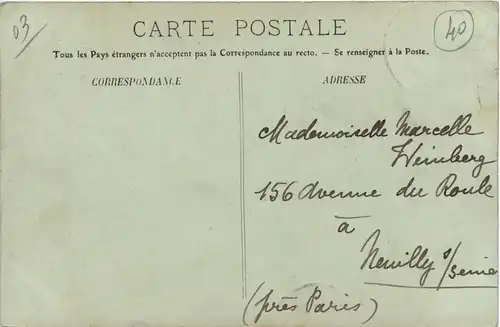 03
40
CARTE POSTALE
Tous les Pays étrangers n'acceptent pas la Correspondance au recto. — Se renseigner à la Poste.
CORRESPONDANCE
ADRESSE
Mademoiselle Marcelle
Weinberg
156 Avenue du Roule
à
Neuilly s/Seine
(près Paris)